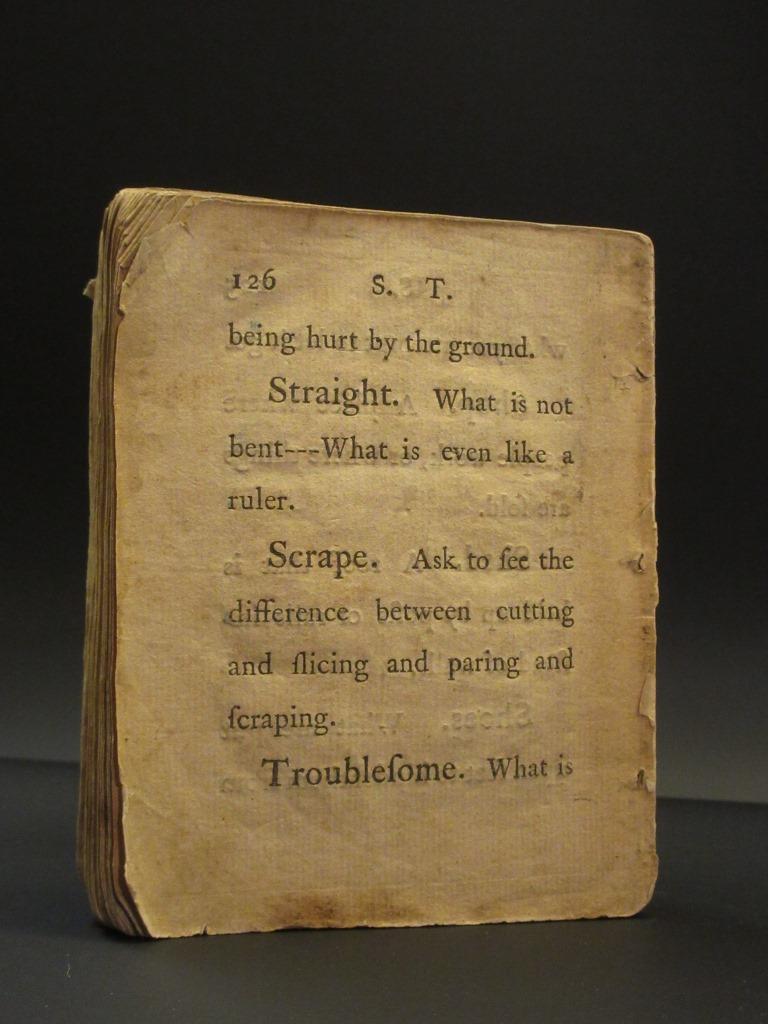 126 S. T.
being hurt by the ground.
Straight. What is not
bent---What is even like a
ruler.
Scrape. Ask to ſee the
difference between cutting
and ſlicing and paring and
ſcraping.
Troubleſome. What is